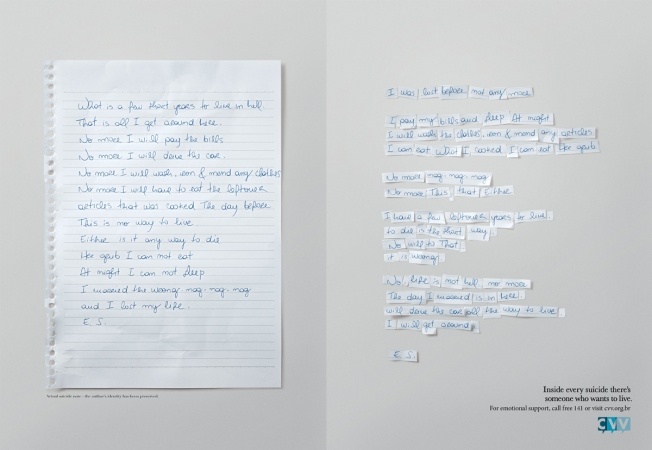 What is a few short years to live in hell.
That is all I get around here.
No more I will pay the bills
No more I will drive the car.
No more I will wash, iron & mend any clothes
No more I will have to eat the leftover
articles that was cooked the day before
This is no way to live.
Either is it any way to die
Her grub I can not eat
At night I can not sleep
I married the wrong. nag. nag. nag
and I lost my life.
E. S.
Actual suicide note – the author's identity has been preserved.
I was lost before not any more!
I pay my bills and sleep At night
I will wash the clothes, iron & mend any articles.
I can eat What I cooked, I can eat Her grub!
No more nag. nag. nag
No more This, that, Either
I have a few leftover years to live.
to die is the short way.
No will to That.
it is wrong.
No! life is not hell no more
The day I married is in here.
will drive the car all the way to live.
I will get around.
E. S.
Inside every suicide there's
someone who wants to live.
For emotional support, call free 141 or visit cvv.org.br
CVV